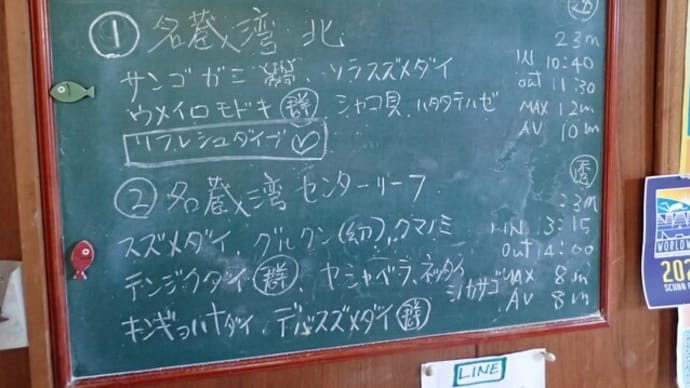 ① 名蔵湾 北
23m
サンゴガミ、ソラスズメダイ
IN 10:40
out 11:30
ウメイロモドキ 群、シャコ貝、ハタタテハゼ
MAX 12m
AV 10m
リフレシュダイブ♡
② 名蔵湾 センターリーフ
秀
23m
スズメダイ、グルクン(幼)、クマノミ
IN 13:15
Out 14:00
テンジクダイ 群、ヤシャベラ、ネッタイ
ミカサゴ
MAX 8m
AV 8m
キンギョハナダイ デバスズメダイ 群
WORLD
SCUBA
LINE